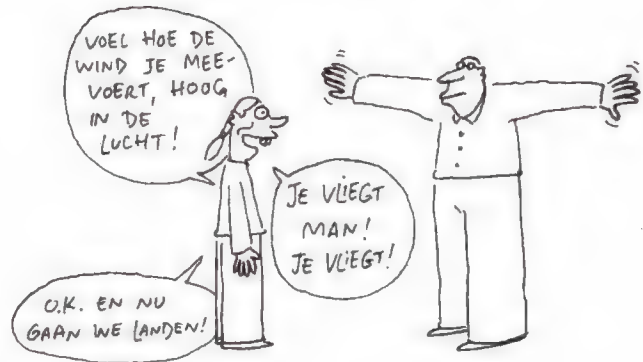 VOEL HOE DE
WIND JE MEE-
VOERT, HOOG
IN DE
LUCHT!
JE VLIEGT
MAN!
JE VLIEGT!
O.K. EN NU
GAAN WE LANDEN!